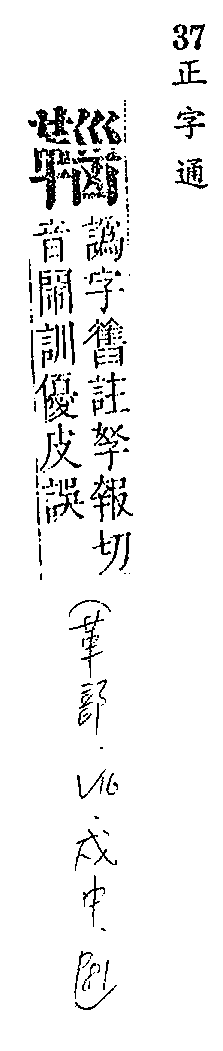 37 正字通
譌字舊註拏報切
音鬧訓優皮誤
(革部.V16.戌中.P81)